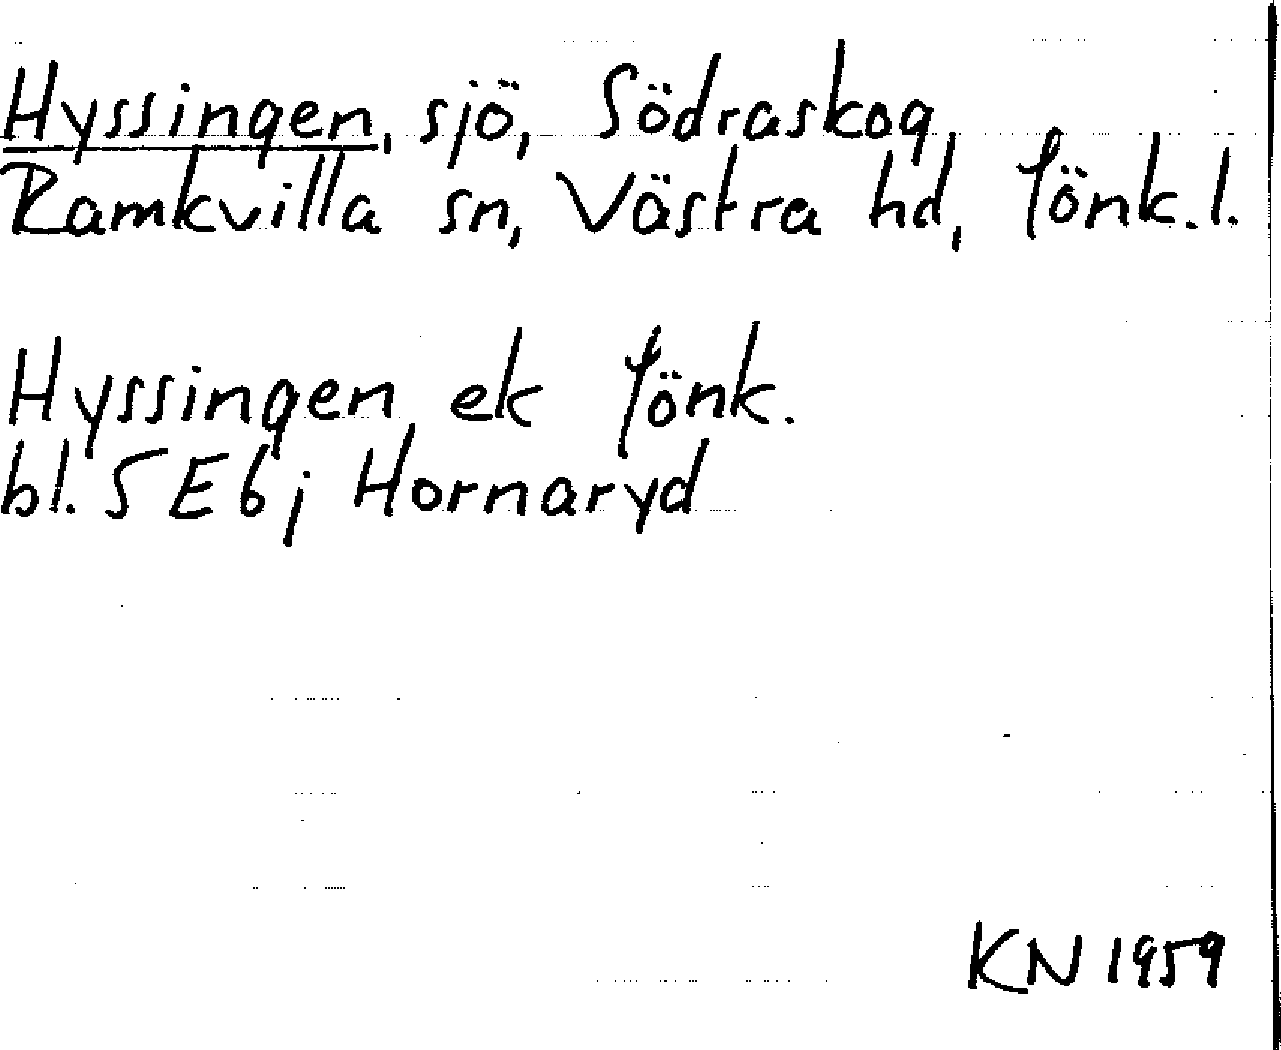 Hyssingen, sjö, Södraskog,
Ramkvilla sn, Västra hd, Jönk.l.
Hyssingen ek Jönk.
bl. 5E6j Hornaryd
KN 1959